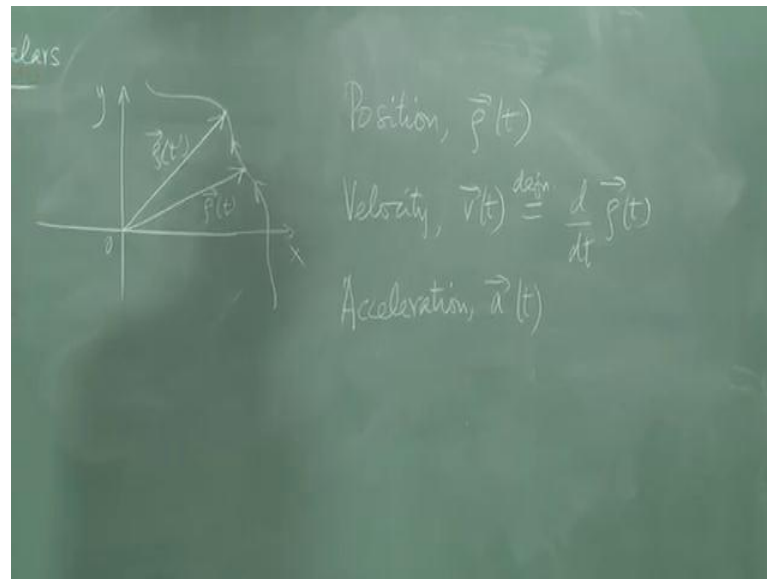 y
ρ⃗(t')
ρ⃗(t)
0
x
Position, ρ⃗(t)
Velocity, v⃗(t) defn. = d/dt ρ⃗(t)
Acceleration, a⃗(t)